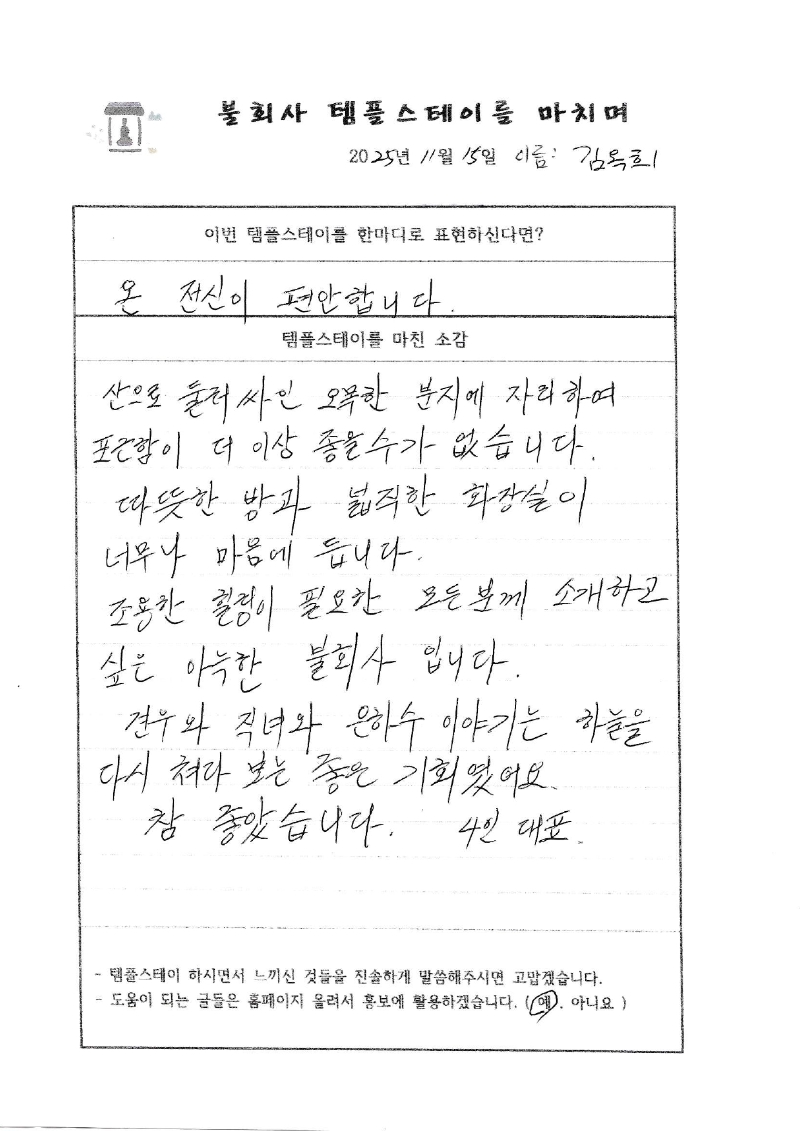 불회사 템플스테이를 마치며
2025년 11월 15일 이름: 김옥희
이번 템플스테이를 한마디로 표현하신다면?
온 전신이 편안합니다.
템플스테이를 마친 소감
산으로 둘러 싸인 오목한 분지에 자리하여
포근함이 더 이상 좋을수가 없습니다.
따뜻한 방과 넓직한 화장실이
너무나 마음에 듭니다.
조용한 힐링이 필요한 모든분께 소개하고
싶은 아늑한 불회사 입니다.
견우와 직녀와 은하수 이야기는 하늘을
다시 쳐다 보는 좋은 기회였어요.
참 좋았습니다. 4인 대표.
- 템플스테이 하시면서 느끼신 것들을 진솔하게 말씀해주시면 고맙겠습니다.
- 도움이 되는 글들은 홈페이지 올려서 홍보에 활용하겠습니다. ( 예 . 아니요 )